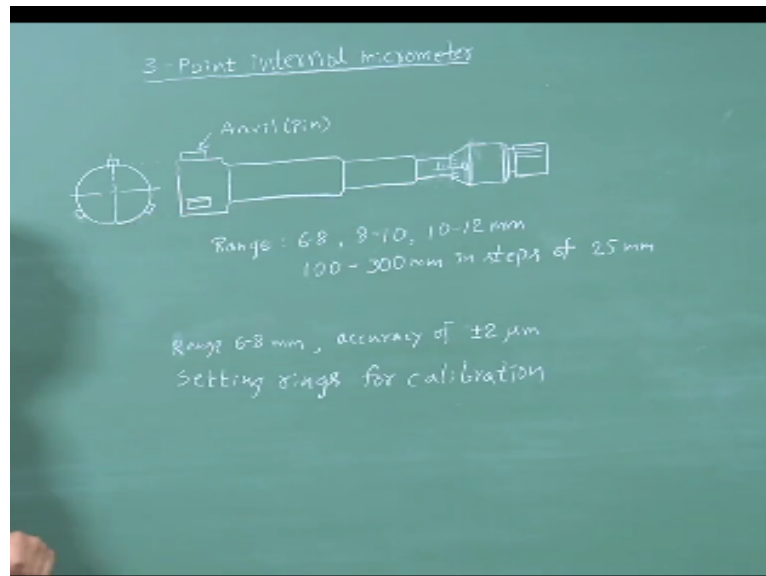 3-Point internal micrometer
Anvil(Pin)
Range : 6-8, 8-10, 10-12 mm
100-300 mm in steps of 25 mm
Range 6-8 mm, accuracy of ±2 μm
Setting rings for calibration